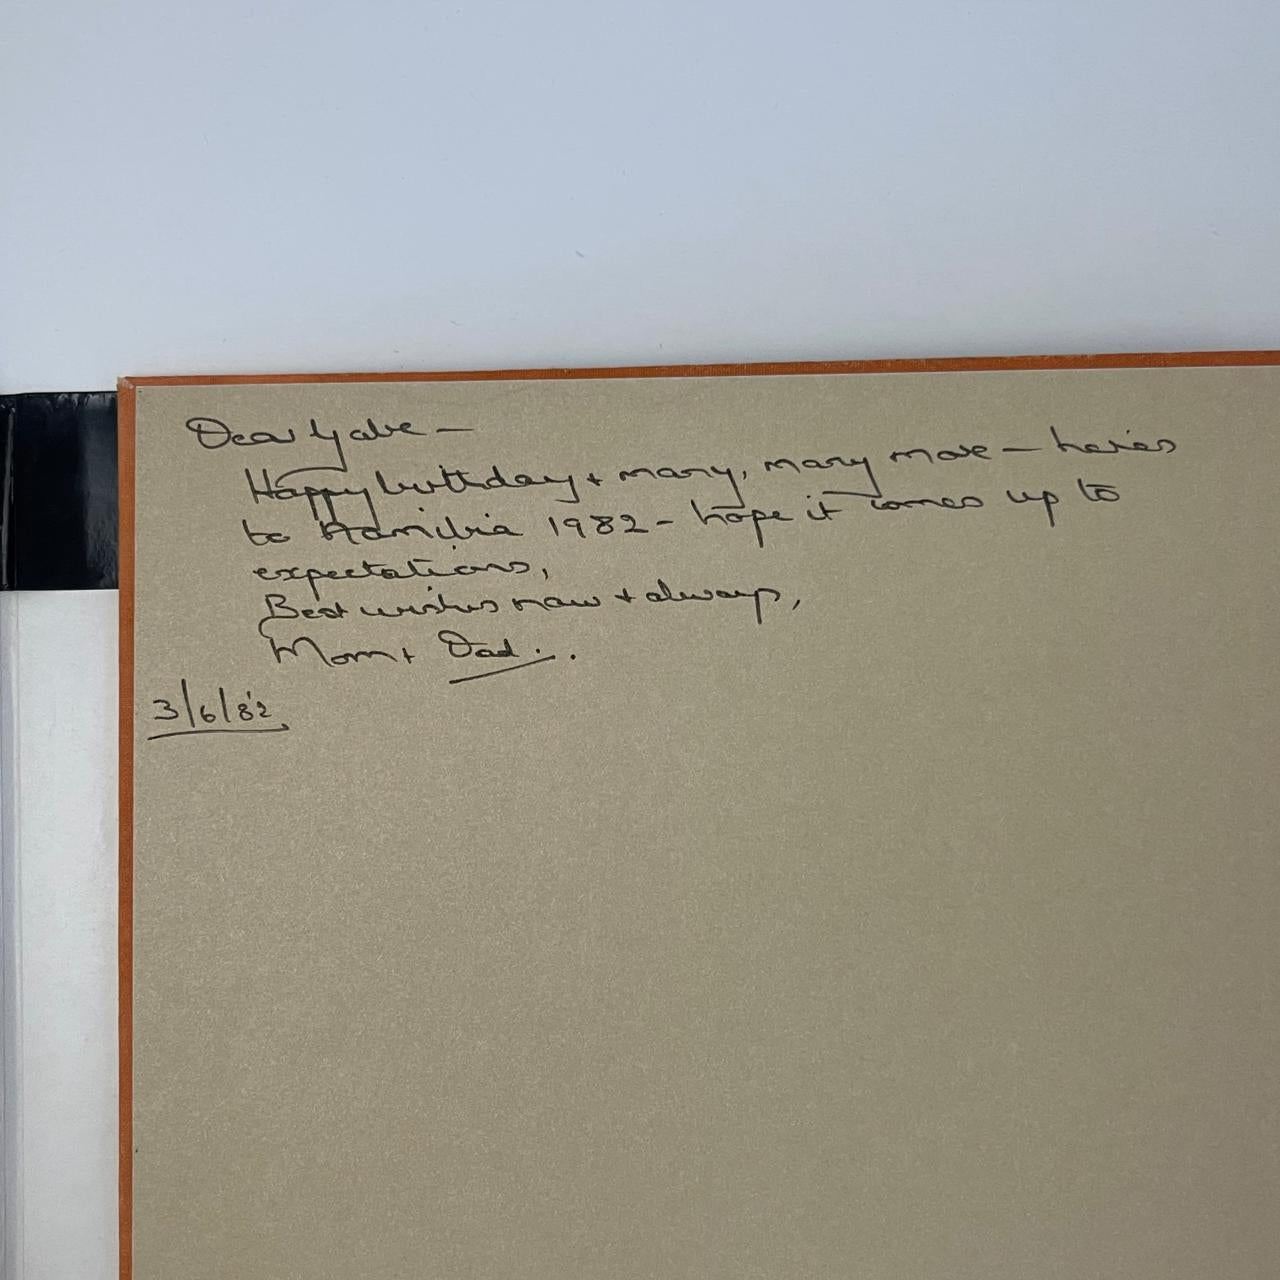 Dear Gabe —
Happy birthday + many, many more — here's
to Namibia 1982 - hope it comes up to
expectations,
Best wishes now + always,
Mom + Dad..
3/6/82